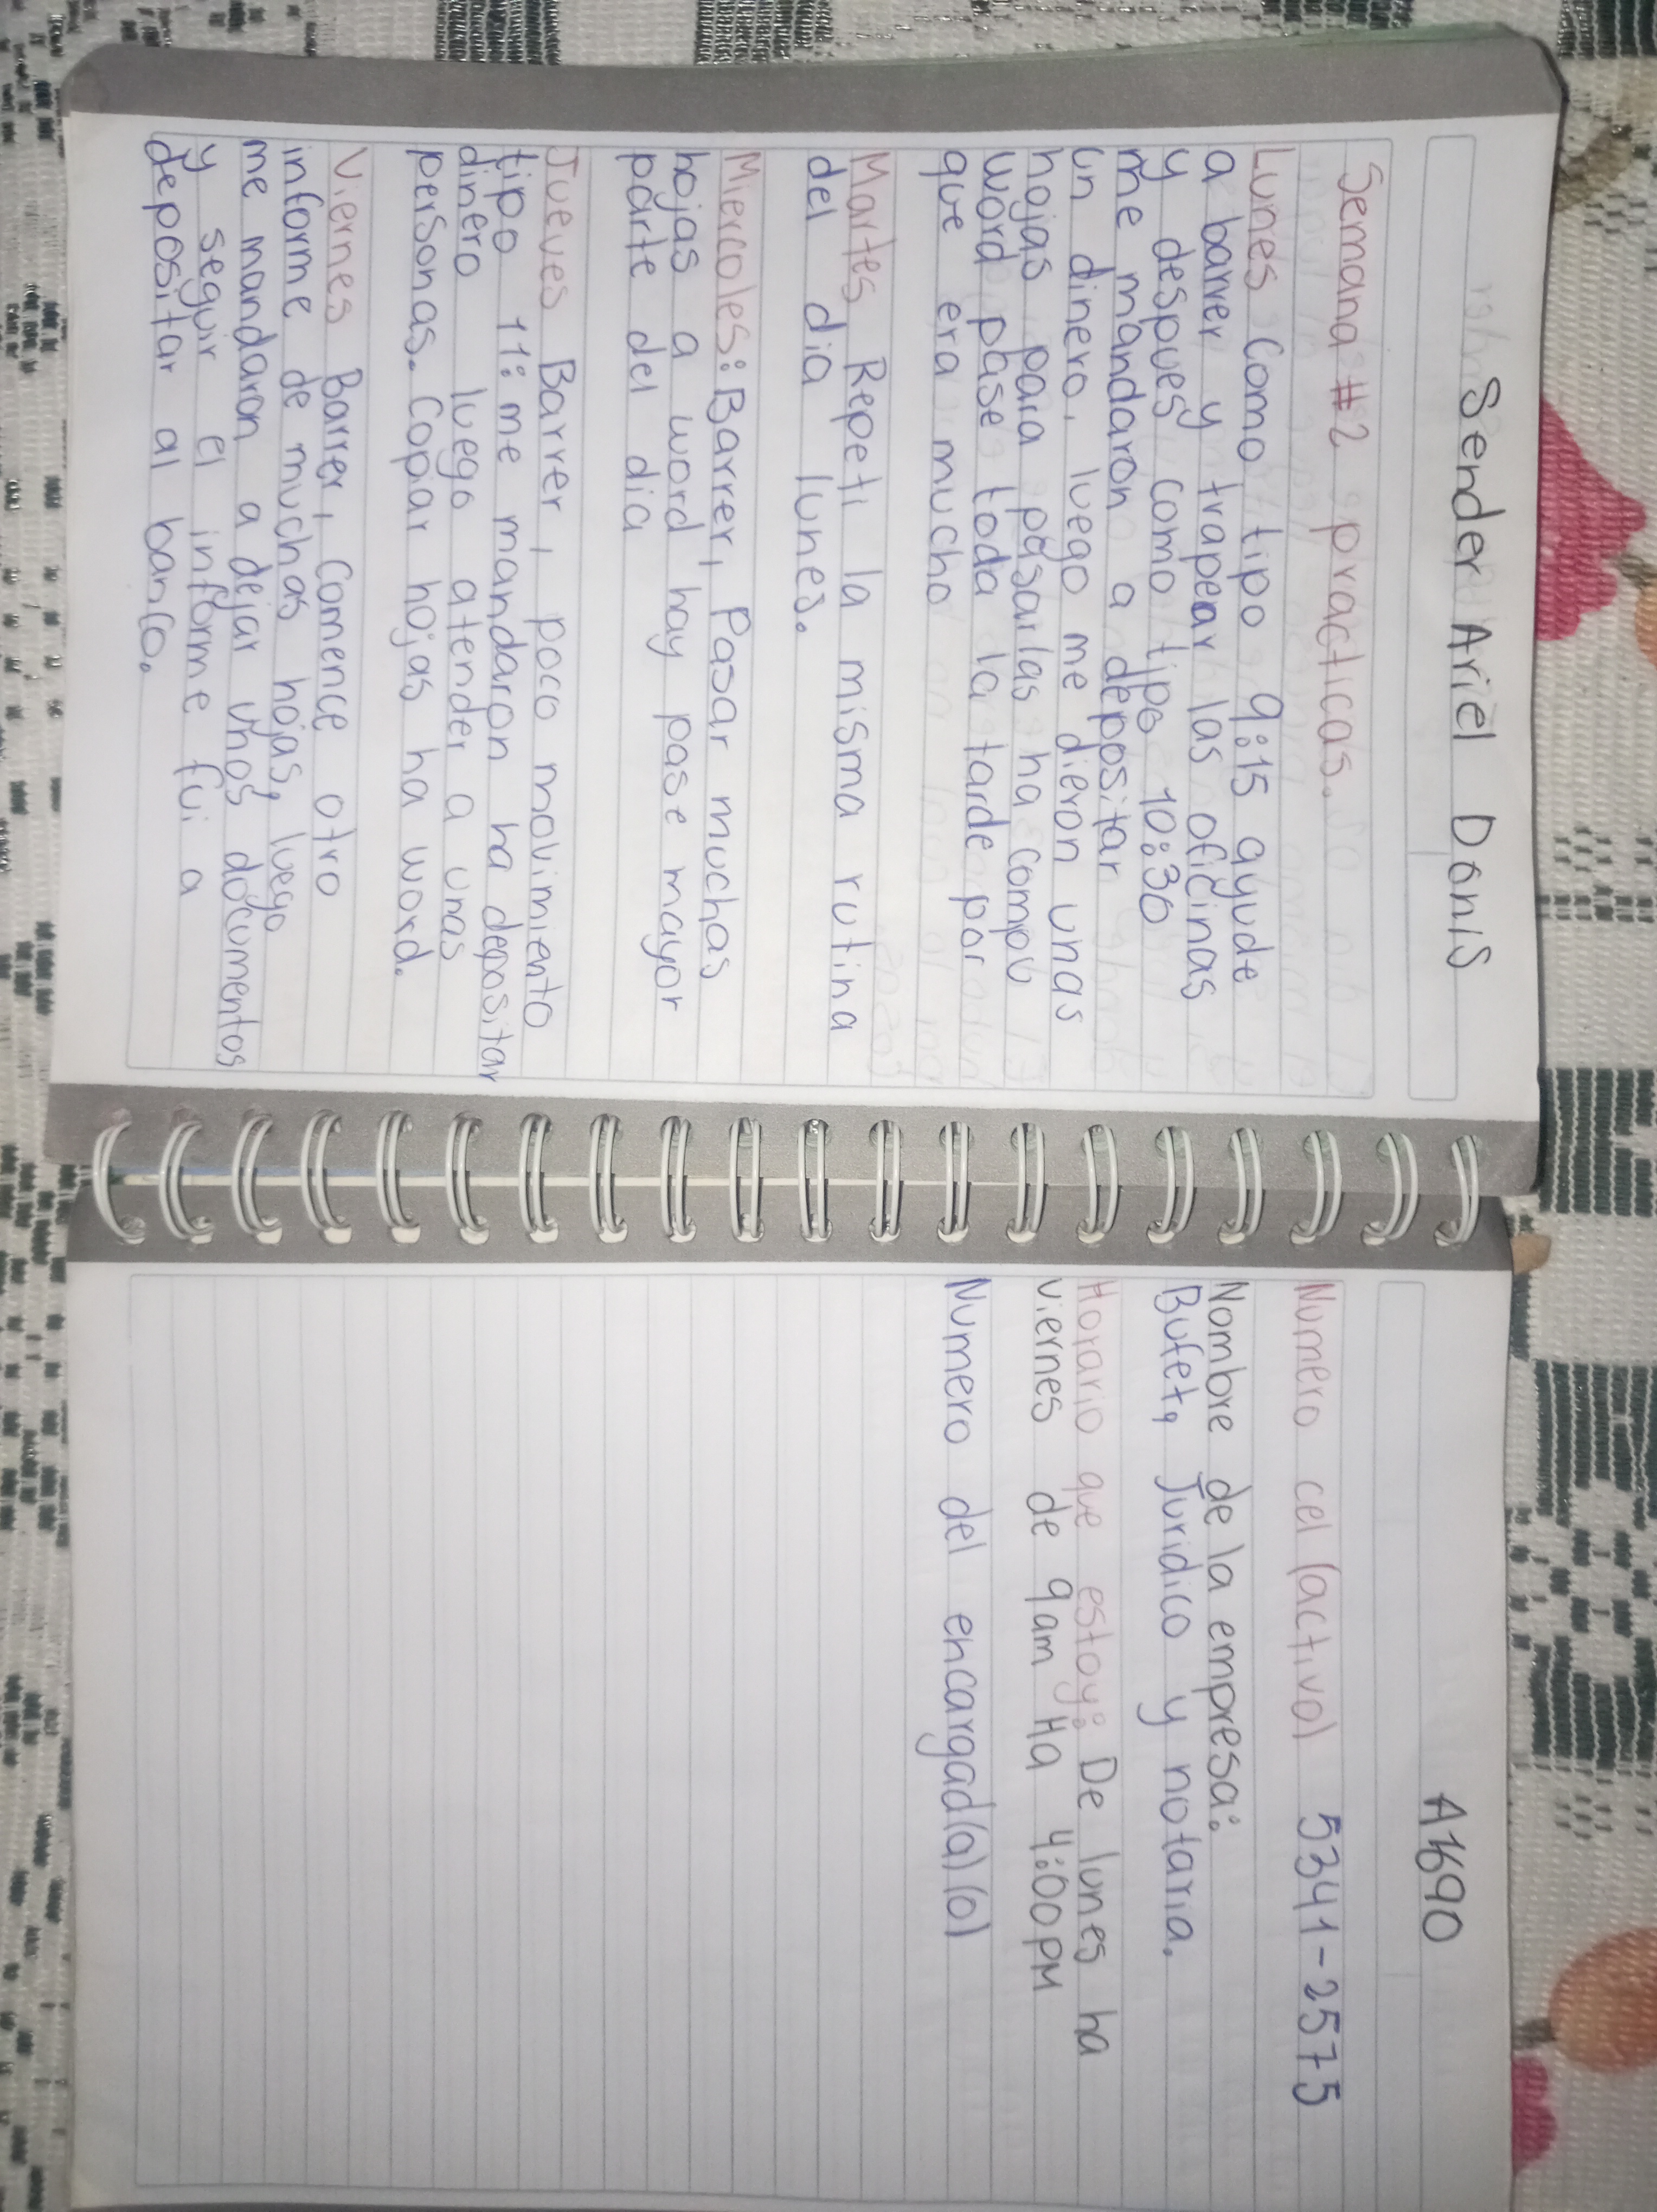 Sender Ariel Donis
Semana #2 practicas.
Lunes Como tipo 9:15 ayude
a barrer y trapear las oficinas
y despues como tipo 10:30
me mandaron a depositar
un dinero, luego me dieron unas
hojas para pasarlas ha compu
word pase toda la tarde por
que era mucho
Martes Repeti la misma rutina
del dia lunes.
Miercoles: Barrer, Pasar muchas
hojas a word hay pase mayor
parte del dia
Jueves Barrer, poco movimiento
tipo 11: me mandaron ha depositar
dinero luego atender a unas
personas. Copiar hojas ha word.
Viernes Barrer, Comence otro
informe de muchas hojas, luego
me mandaron a dejar unos documentos
y seguir el informe fui a
depositar al banco.
Numero cel (activo) 5341-2575
Nombre de la empresa:
Bufet, Juridico y notaria.
Horario que estoy: De lunes ha
viernes de 9am Ha 4:00PM
Numero del encargad(a)(o)